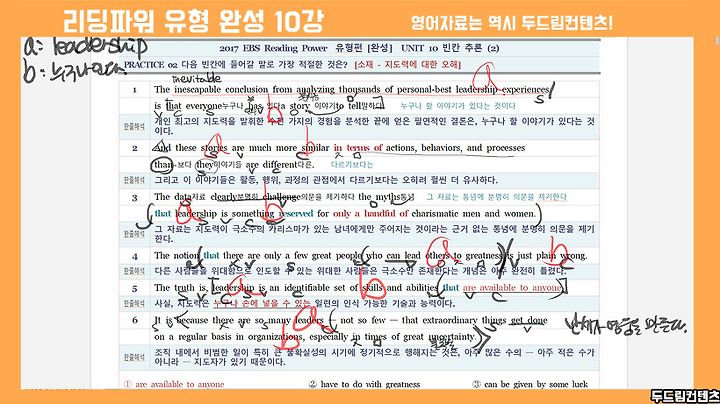 리딩파워 유형 완성 10강
영어자료는 역시 두드림컨텐츠!
a: leadership
b: 누구나 있다.
2017 EBS Reading Power 유형편 [완성] UNIT 10 빈칸 추론 (2)
PRACTICE 02 다음 빈칸에 들어갈 말로 가장 적절한 것은? [소재 - 지도력에 대한 오해]
inevitable
1 The inescapable conclusion from analyzing thousands of personal-best leadership experiences
is that everyone누구나 has 있다 a story 이야기 to tell말하다 누구나 할 이야기가 있다는 것이다
한줄해석 개인 최고의 지도력을 발휘한 수천 가지의 경험을 분석한 끝에 얻은 필연적인 결론은, 누구나 할 이야기가 있다는 것이
다.
2 And these stories are much more similar in terms of actions, behaviors, and processes
than 보다 they이야기들 are different다른. 다르기보다는
한줄해석 그리고 이 이야기들은 활동, 행위, 과정의 관점에서 다르기보다는 오히려 훨씬 더 유사하다.
3 The data자료 clearly분명히 challenge의문을 제기하다 the myths통념 그 자료는 통념에 분명히 의문을 제기한다
that leadership is something reserved for only a handful of charismatic men and women.
한줄해석 그 자료는 지도력이 극소수의 카리스마가 있는 남녀에게만 주어지는 것이라는 근거 없는 통념에 분명히 의문을 제기
한다.
4 The notion that there are only a few great people who can lead others to greatness is just plain wrong.
한줄해석 다른 사람들을 위대함으로 인도할 수 있는 위대한 사람들은 극소수만 존재한다는 개념은 아주 완전히 틀렸다.
5 The truth is, leadership is an identifiable set of skills and abilities that are available to anyone
한줄해석 사실, 지도력은 누구나 손에 넣을 수 있는 일련의 인식 가능한 기술과 능력이다.
6 It is because there are so many leaders — not so few — that extraordinary things get done
on a regular basis in organizations, especially in times of great uncertainty.
한줄해석 조직 내에서 비범한 일이 특히 큰 불확실성의 시기에 정기적으로 행해지는 것은, 아주 많은 수의 — 아주 적은 수가
아니라 — 지도자가 있기 때문이다.
① are available to anyone ② have to do with greatness ③ can be given by some luck
두드림컨텐츠